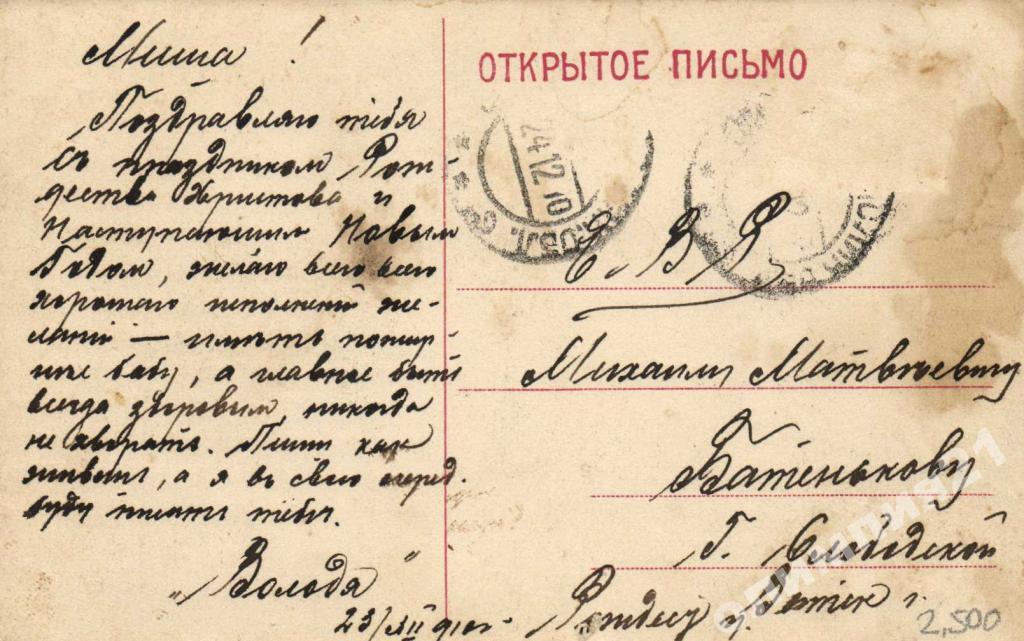 Миша !
Поздравляю тебя
съ праздником Рож
дества Христова и
Наступающим Новым
Годом, желаю всего всего
хорошаго исполненій же-
ланій — имѣть пошир-
бабу, а главное быть
всегда здоровым, никогда
не хворать. Пиши как
живеш, а я въ свою очеред.
буду писать тебѣ.
„Володя"
23/XII 910 г.
ОТКРЫТОЕ ПИСЬМО
24 12 10
Е. В. Б.
Михаилу Матвѣевичу
Батенькову
Г. Слободской
Вятск г.
олимпия21
2,500